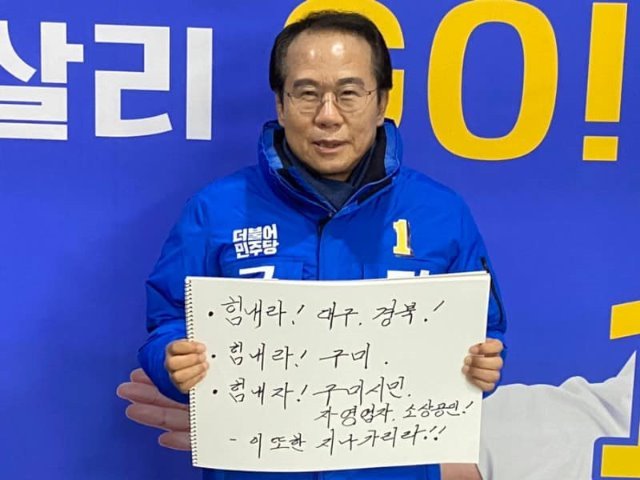 살리 GO!
더불어
민주당
1
• 힘내라! 대구. 경북.!
• 힘내라! 구미.
• 힘내자! 구미시민.
자영업자. 소상공인!
- 이 또한 지나가리라!!
1